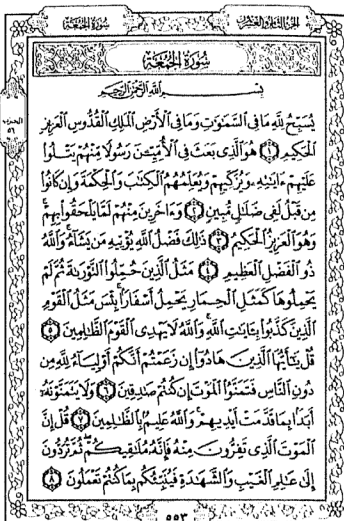 سُورَةُ الجُمُعَةِ
سُورَةُ الجُمُعَةِ
بِسْمِ اللَّهِ الرَّحْمَٰنِ الرَّحِيمِ
يُسَبِّحُ لِلَّهِ مَا فِي السَّمَٰوَٰتِ وَمَا فِي الْأَرْضِ الْمَلِكِ الْقُدُّوسِ الْعَزِيزِ
الْحَكِيمِ ١ هُوَ الَّذِي بَعَثَ فِي الْأُمِّيِّينَ رَسُولًا مِنْهُمْ يَتْلُوا
عَلَيْهِمْ ءَايَٰتِهِ وَيُزَكِّيهِمْ وَيُعَلِّمُهُمُ الْكِتَٰبَ وَالْحِكْمَةَ وَإِن كَانُوا
مِن قَبْلُ لَفِي ضَلَٰلٍ مُّبِينٍ ٢ وَءَاخَرِينَ مِنْهُمْ لَمَّا يَلْحَقُوا بِهِمْ
وَهُوَ الْعَزِيزُ الْحَكِيمُ ٣ ذَٰلِكَ فَضْلُ اللَّهِ يُؤْتِيهِ مَن يَشَاءُ وَاللَّهُ
ذُو الْفَضْلِ الْعَظِيمِ ٤ مَثَلُ الَّذِينَ حُمِّلُوا التَّوْرَىٰةَ ثُمَّ لَمْ
يَحْمِلُوهَا كَمَثَلِ الْحِمَارِ يَحْمِلُ أَسْفَارًا بِئْسَ مَثَلُ الْقَوْمِ
الَّذِينَ كَذَّبُوا بِـَٔايَٰتِ اللَّهِ وَاللَّهُ لَا يَهْدِي الْقَوْمَ الظَّٰلِمِينَ ٥
قُلْ يَٰأَيُّهَا الَّذِينَ هَادُوا إِن زَعَمْتُمْ أَنَّكُمْ أَوْلِيَاءُ لِلَّهِ مِن
دُونِ النَّاسِ فَتَمَنَّوُا الْمَوْتَ إِن كُنتُمْ صَٰدِقِينَ ٦ وَلَا يَتَمَنَّوْنَهُ
أَبَدًا بِمَا قَدَّمَتْ أَيْدِيهِمْ وَاللَّهُ عَلِيمٌ بِالظَّٰلِمِينَ ٧ قُلْ إِنَّ
الْمَوْتَ الَّذِي تَفِرُّونَ مِنْهُ فَإِنَّهُ مُلَٰقِيكُمْ ثُمَّ تُرَدُّونَ
إِلَىٰ عَٰلِمِ الْغَيْبِ وَالشَّهَٰدَةِ فَيُنَبِّئُكُم بِمَا كُنتُمْ تَعْمَلُونَ ٨
٥٥٣